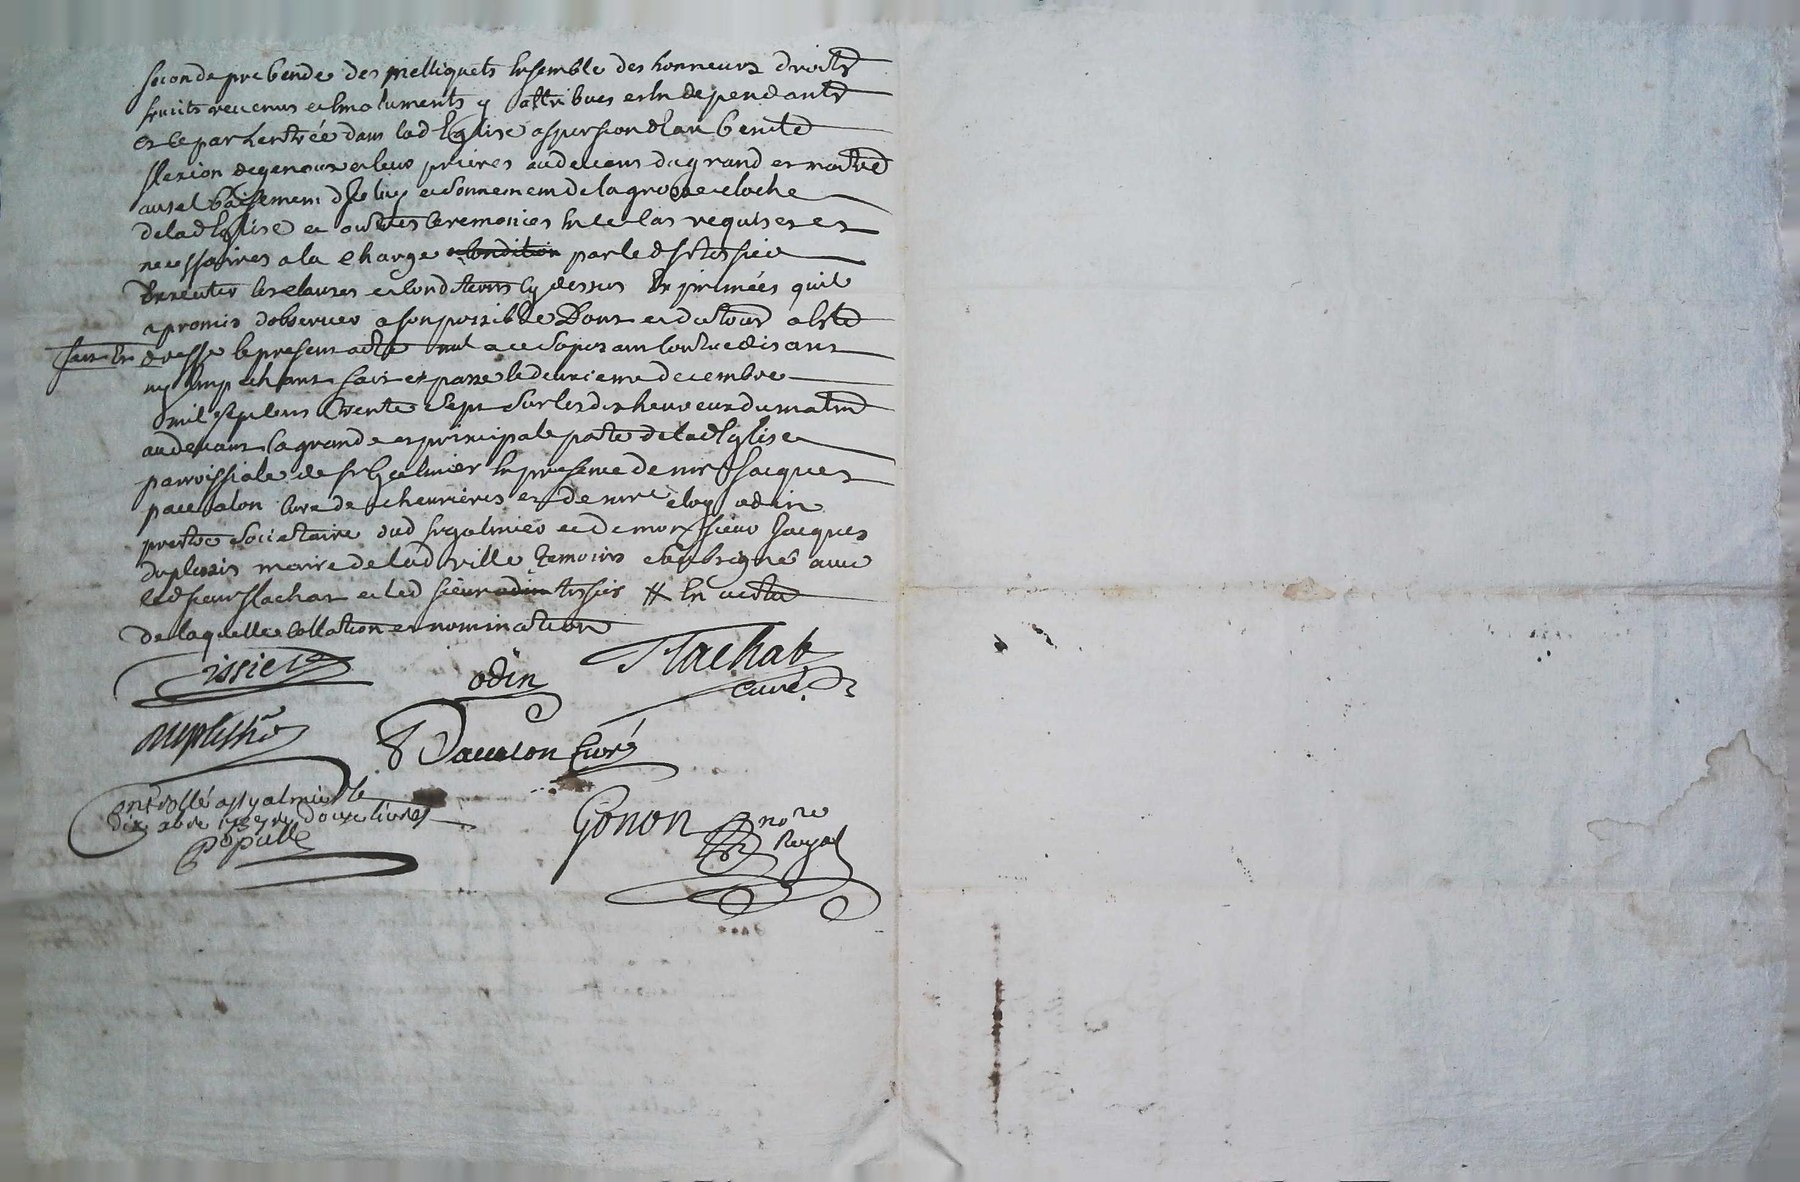 seconde prebende des melliquets ensemble des honneurs droits
fruits revenus et emoluments y attribues et en dependants
et ce par lentrée dans lad Eglise aspersion deau benite
flexion de genoux et leur prieres au devans du grand et maitre
autel baisement diceluy et sonnement de la grosse cloche
de lad Eglise et autres ceremonies en ce cas requises et
necessaires a la charge condition par led sr tissier
Executer les clauses et conditions cy dessus Exprimées quil
a promis dobserver a son possible Dont et du tout a esté
dresse le present acte nul a ce soposant contredisant
ny Empechant fait et passe le deuxieme decembre
mil sept cens trente sept sur les dix heures du matin
au devant la grande et principale porte de lad Eglise
parroissiale de st Galmier en presence de mre Jacques
pacalon curé de chevrieres et de mre eloy odin
prestre societaire dud st galmier et de monsieur Jacques
duplessis maire de lad ville temoins soubsigné avec
led sieur flachat et led sieur odin tissier # En vertu
de laquelle collation et nomination
Tissier
odin
flachat
curé
duplessis
Pacalon Curé
Controllé a st galmier le
dix xbre 1737 reçu douze livres
Gonon nore
Royal